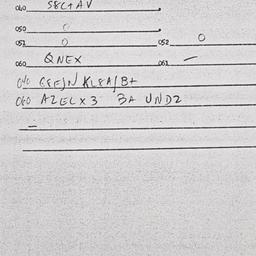 040 S8C+AV
050 0
051 0 052 0
060 QNEX 061 -
040 GEEJN KLEA/B+
060 AZELX3 BA UNDZ
-